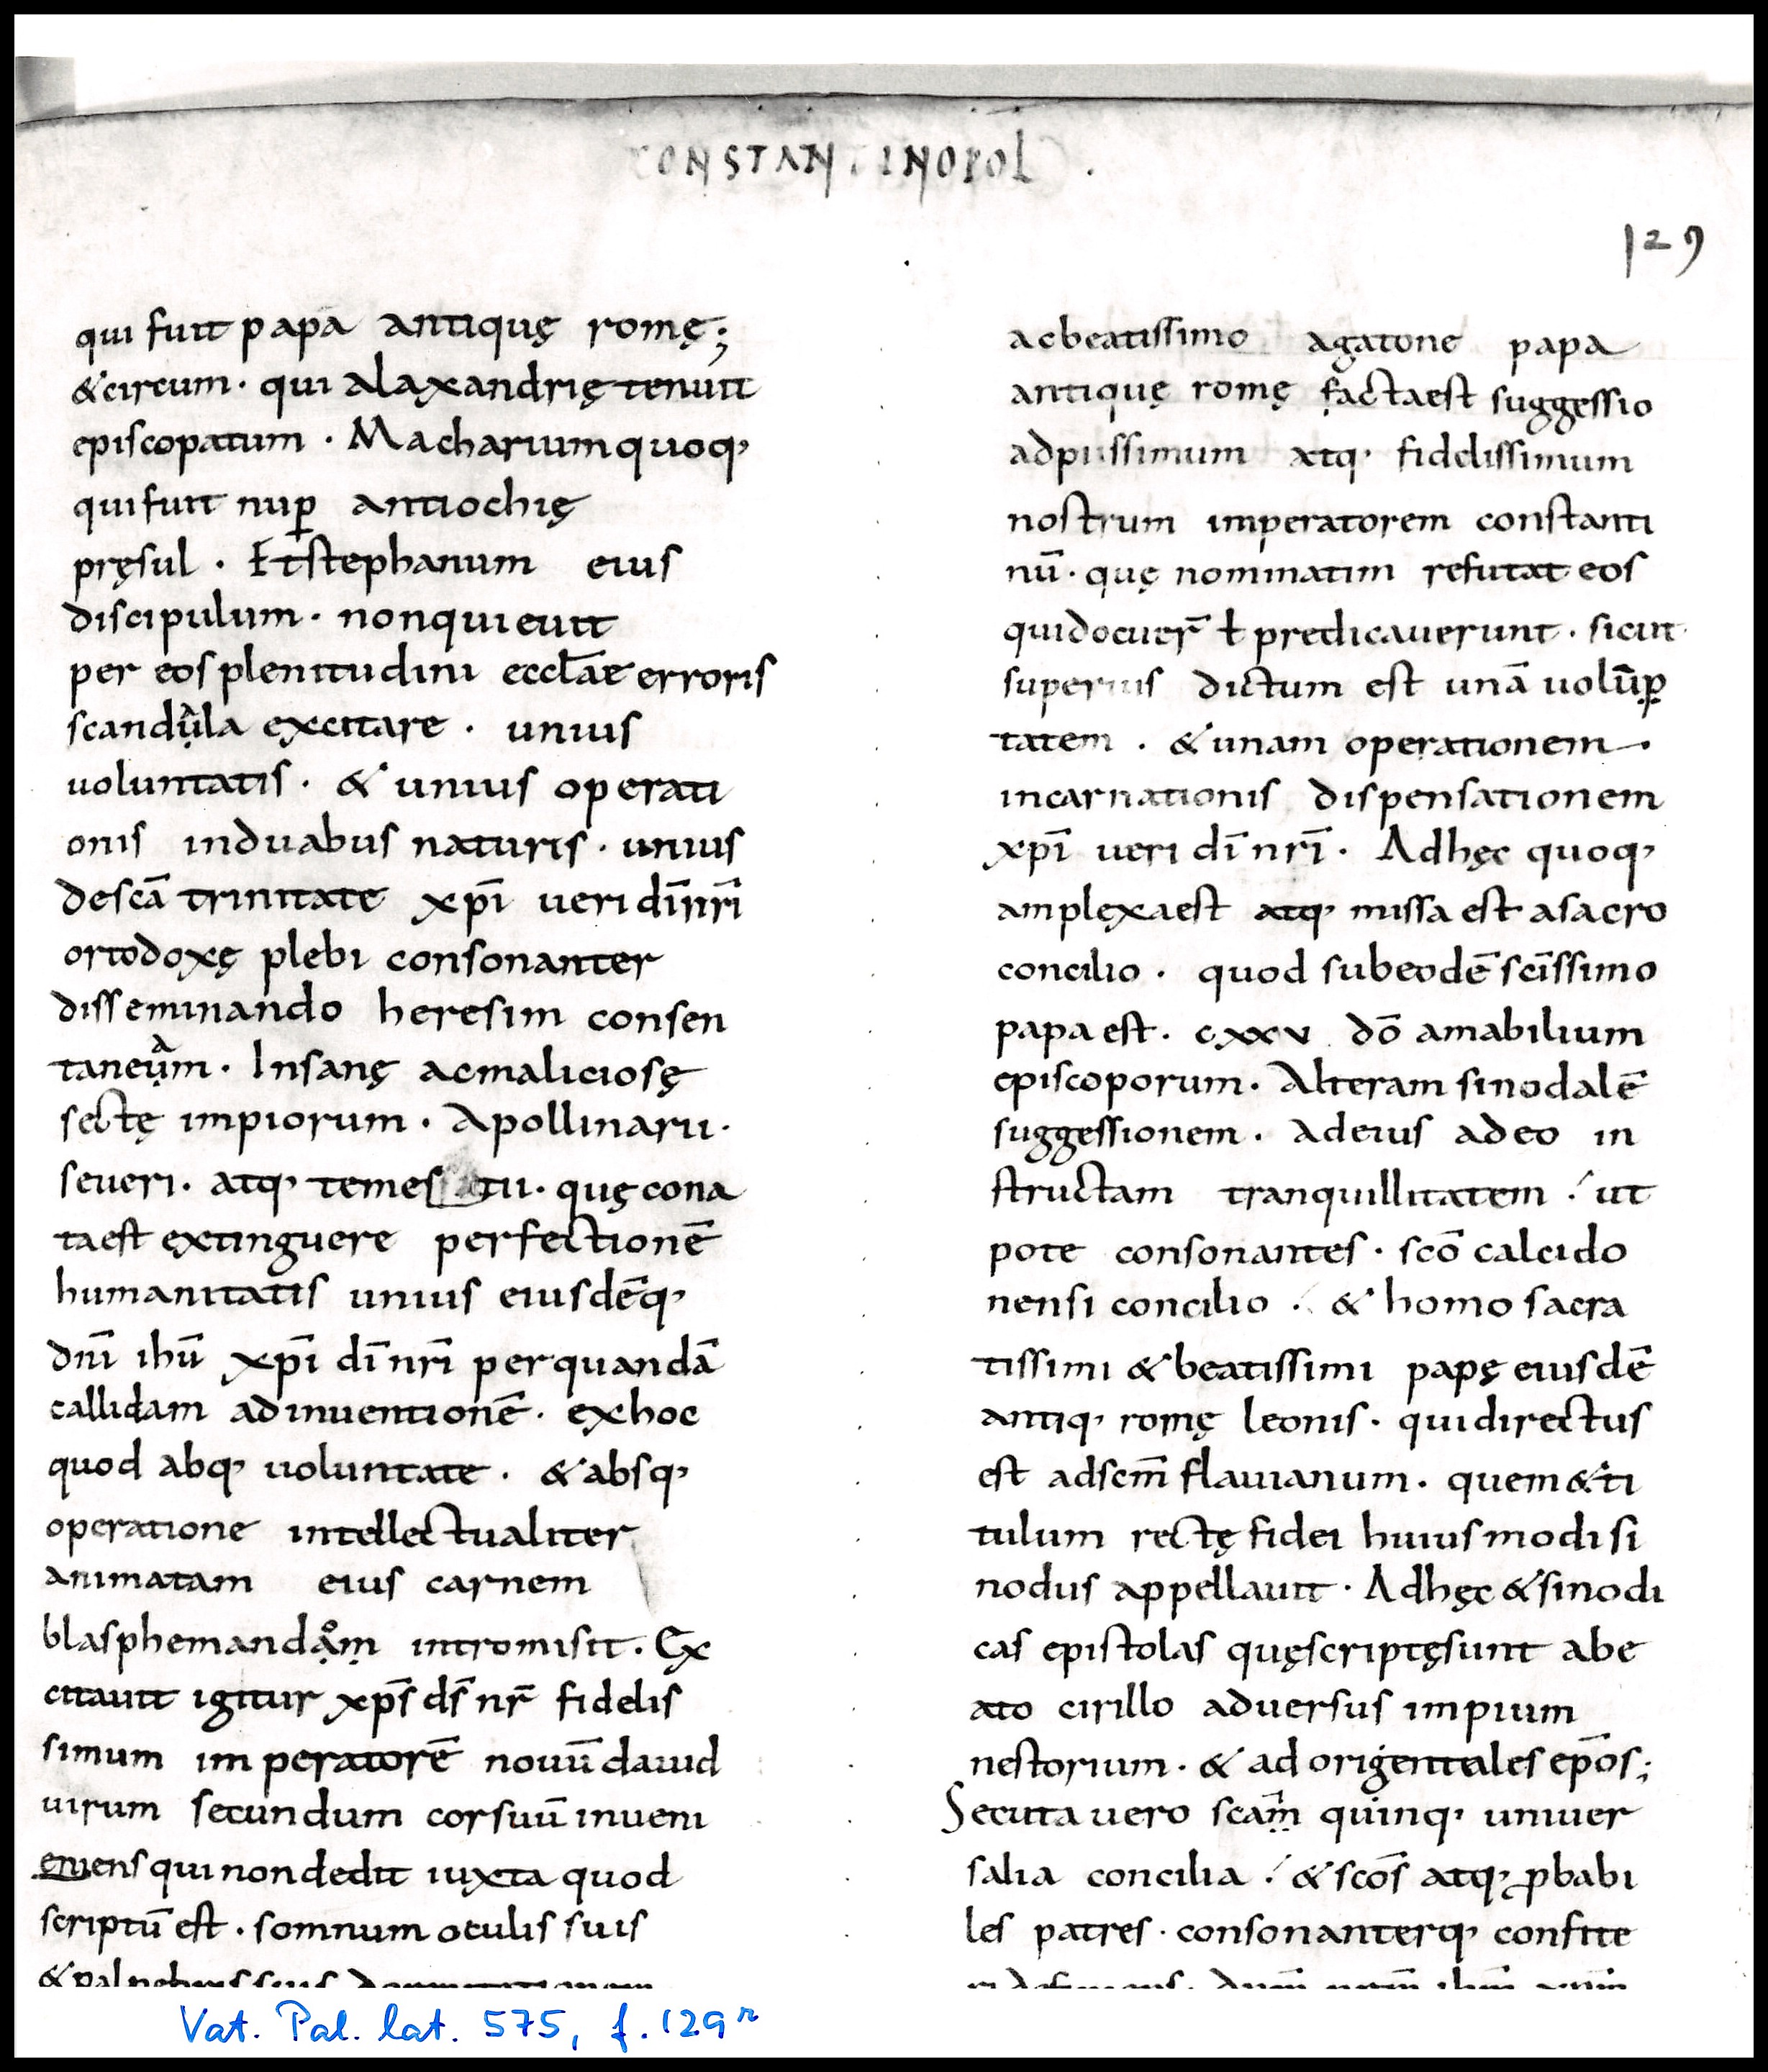 CONSTANTINOPOL
129
qui fuit papa antiquę romę;
& cirum · qui alaxandrię tenuit
episcopatum · Macharium quoq'
qui fuit nup̱ antiochię
pręsul · Et stephanum eius
discipulum · non quieuit
per eos plenitudini eccl̄ae erroris
scandula excitare · unius
uoluntatis · & unius operati
onis in duabus naturis · unius
de sc̄a trinitate xp̄i ueri dī nr̄i
ortodoxę plebi consonanter
disseminando heresim consen
taneum · Insanę ac maliciosę
sectę impiorum · Apollinarii ·
seueri · atq' temes tii · quę cona
ta est extinguere perfectionē
humanitatis unius eiusdēq'
dn̄i ihū xp̄i dī nr̄i per quandā
callidam adinuentionē · ex hoc
quod abq' uoluntate · & absq'
operatione intellectualiter
animatam eius carnem
blasphemandam intromisit · Ex
citauit igitur xp̄s ds̄ nr̄ fidelis
simum imperatorē nouū dauid
uirum secundum cor suū inueni
eniens qui non dedit iuxta quod
scriptū est · somnum oculis suis
ac beatissimo agatone papa
antiquę romę facta est suggessio
ad piissimum atq' fidelissimum
nostrum imperatorem constanti
nū · quę nominatim refutat eos
qui docuer̄ ł predicauerunt · sicut
superius dictum est unā uolūp̱
tatem · & unam operationem ·
incarnationis dispensationem
xp̄i ueri dī nr̄i · Ad hęc quoq'
amplexa est atq' missa est a sacro
concilio · quod sub eodē sc̄issimo
papa est · cxxv dō amabilium
episcoporum · Alteram sinodalē
suggessionem · Ad eius adeo in
structam tranquillitatem ·/ ut
pote consonantes · sc̄o calcido
nensi concilio ·/ & homo sacra
tissimi & beatissimi papę eiusdē
antiq' romę leonis · qui directus
est ad sc̄m flauianum · quem & ti
tulum rectę fidei huiusmodi si
nodus appellauit · Ad hęc & sinodi
cas epistolas quę scriptę sunt a be
ato cirillo aduersus impium
nestorium · & ad origentales ep̄os;
Secuta uero scām quinq' uniuer
salia concilia ·/ & sc̄os atq' ꝓbabi
les patres · consonanterq' confite
Vat. Pal. lat. 575, f. 129r